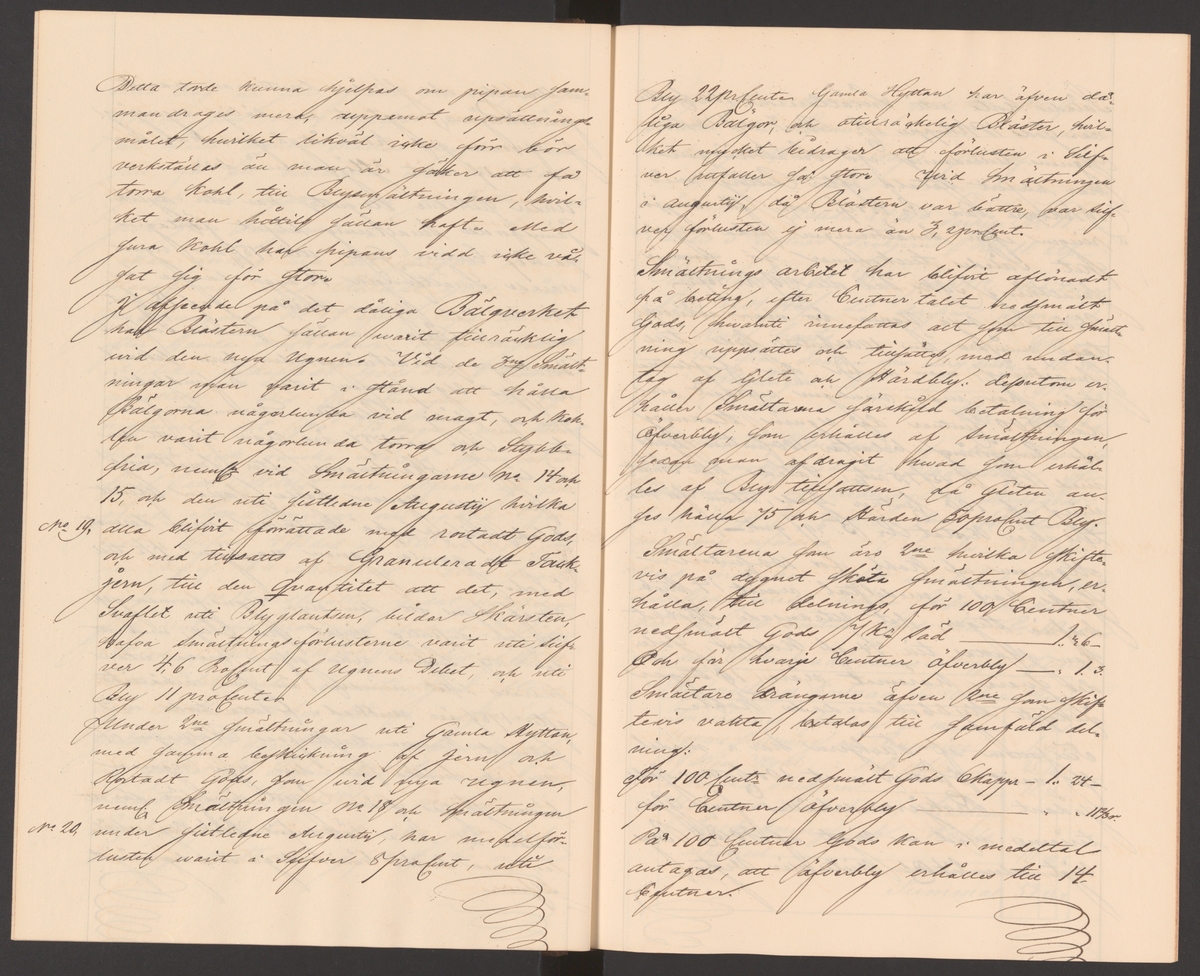 Detta torde kunna hjelpas om pipan sam-
mandroges mera, uppemot upsättnings
målet, hvilket likväl icke förr bör
verkställas än man är säker att få
torra Kohl, till Blysmältningen, hvil-
ket man hittils sällan haft. Med
sura Kohl har pipans vidd icke vå-
gat sig för stor.
I afseende på det dåliga Bälgverket
har Blästern sällan varit tillräcklig
vid den nya Ugnen. Vid de Smält-
ningar man varit i stånd att hålla
Bälgorna någorlunda vid magt, och Koh-
len varit någorlunda torra och Stybb-
fria, neml vid Smältningarne No 14 och
15, och den uti sistledne Augustij hvilka
No 19. alla blifvit förrättade med rostadt Gods,
och med tillsatts af Granuleradt Tack-
jern, till den Quantitet att det, med
Svaflet uti Blyglantsen, bildar Skärsten,
hafva Smältningsförlusterne varit uti Silf-
ver 4,6 ProCent af Ugnens Debet, och uti
Bly 11 proCent.
Under 2ne Smältningar uti Gamla Hyttan,
med samma beskickning af Jern och
Rostadt Gods, som vid nya Ugnen,
neml Smältningen No 18 och Smältningen
No 20. under sistledne Augustij, har medelför-
lusten warit i Silfver 8 proCent, uti
Bly 22 prCent. Gamla Hyttan har äfven då-
liga Bälgor, och otillräckelig Bläster, hvil-
ket mycket bidrager att förlusten i Silf-
ver utfaller så stor. Wid Smältningen
i Augustij, då Blästern var bättre, var Silf-
ver förlusten ej mera än 3,2 prCent.
Smältnings arbetet har blifvit aflönadt
på beting, efter Centner talet nedsmält
Gods, hwaruti innefattas alt som till Smält-
ning uppsättes och tillsättes, med undan-
tag af Glete och Härdbly: desutom er-
håller Smältarena särskild betalning för
Öfverbly, som erhålles af Smältningen,
sedan man afdragit hwad som erhål-
les af Bly tillsattsen, då Gleten an-
ses hålla 75 och Härden 50 proCent Bly.
Smältarena som äro 2ne hvilka skifte-
vis på dygnet sköta Smältningen, er-
hålla, till delnings, för 100 Centner
nedsmält Gods Säd — 1. 6 —
Och för hvarje Centner Öfverbly — „ 1. 3.
Smältare drängarne äfven 2ne som skif-
tevis vakta, betalas till samfäld del-
ning:
För 100 Cent. nedsmält Gods Kappr — 1. 24 —
för Centner Öfverbly —
På 100 Centner Gods kan i medeltal
antagas, att Öfverbly erhålles till 14
Centner.